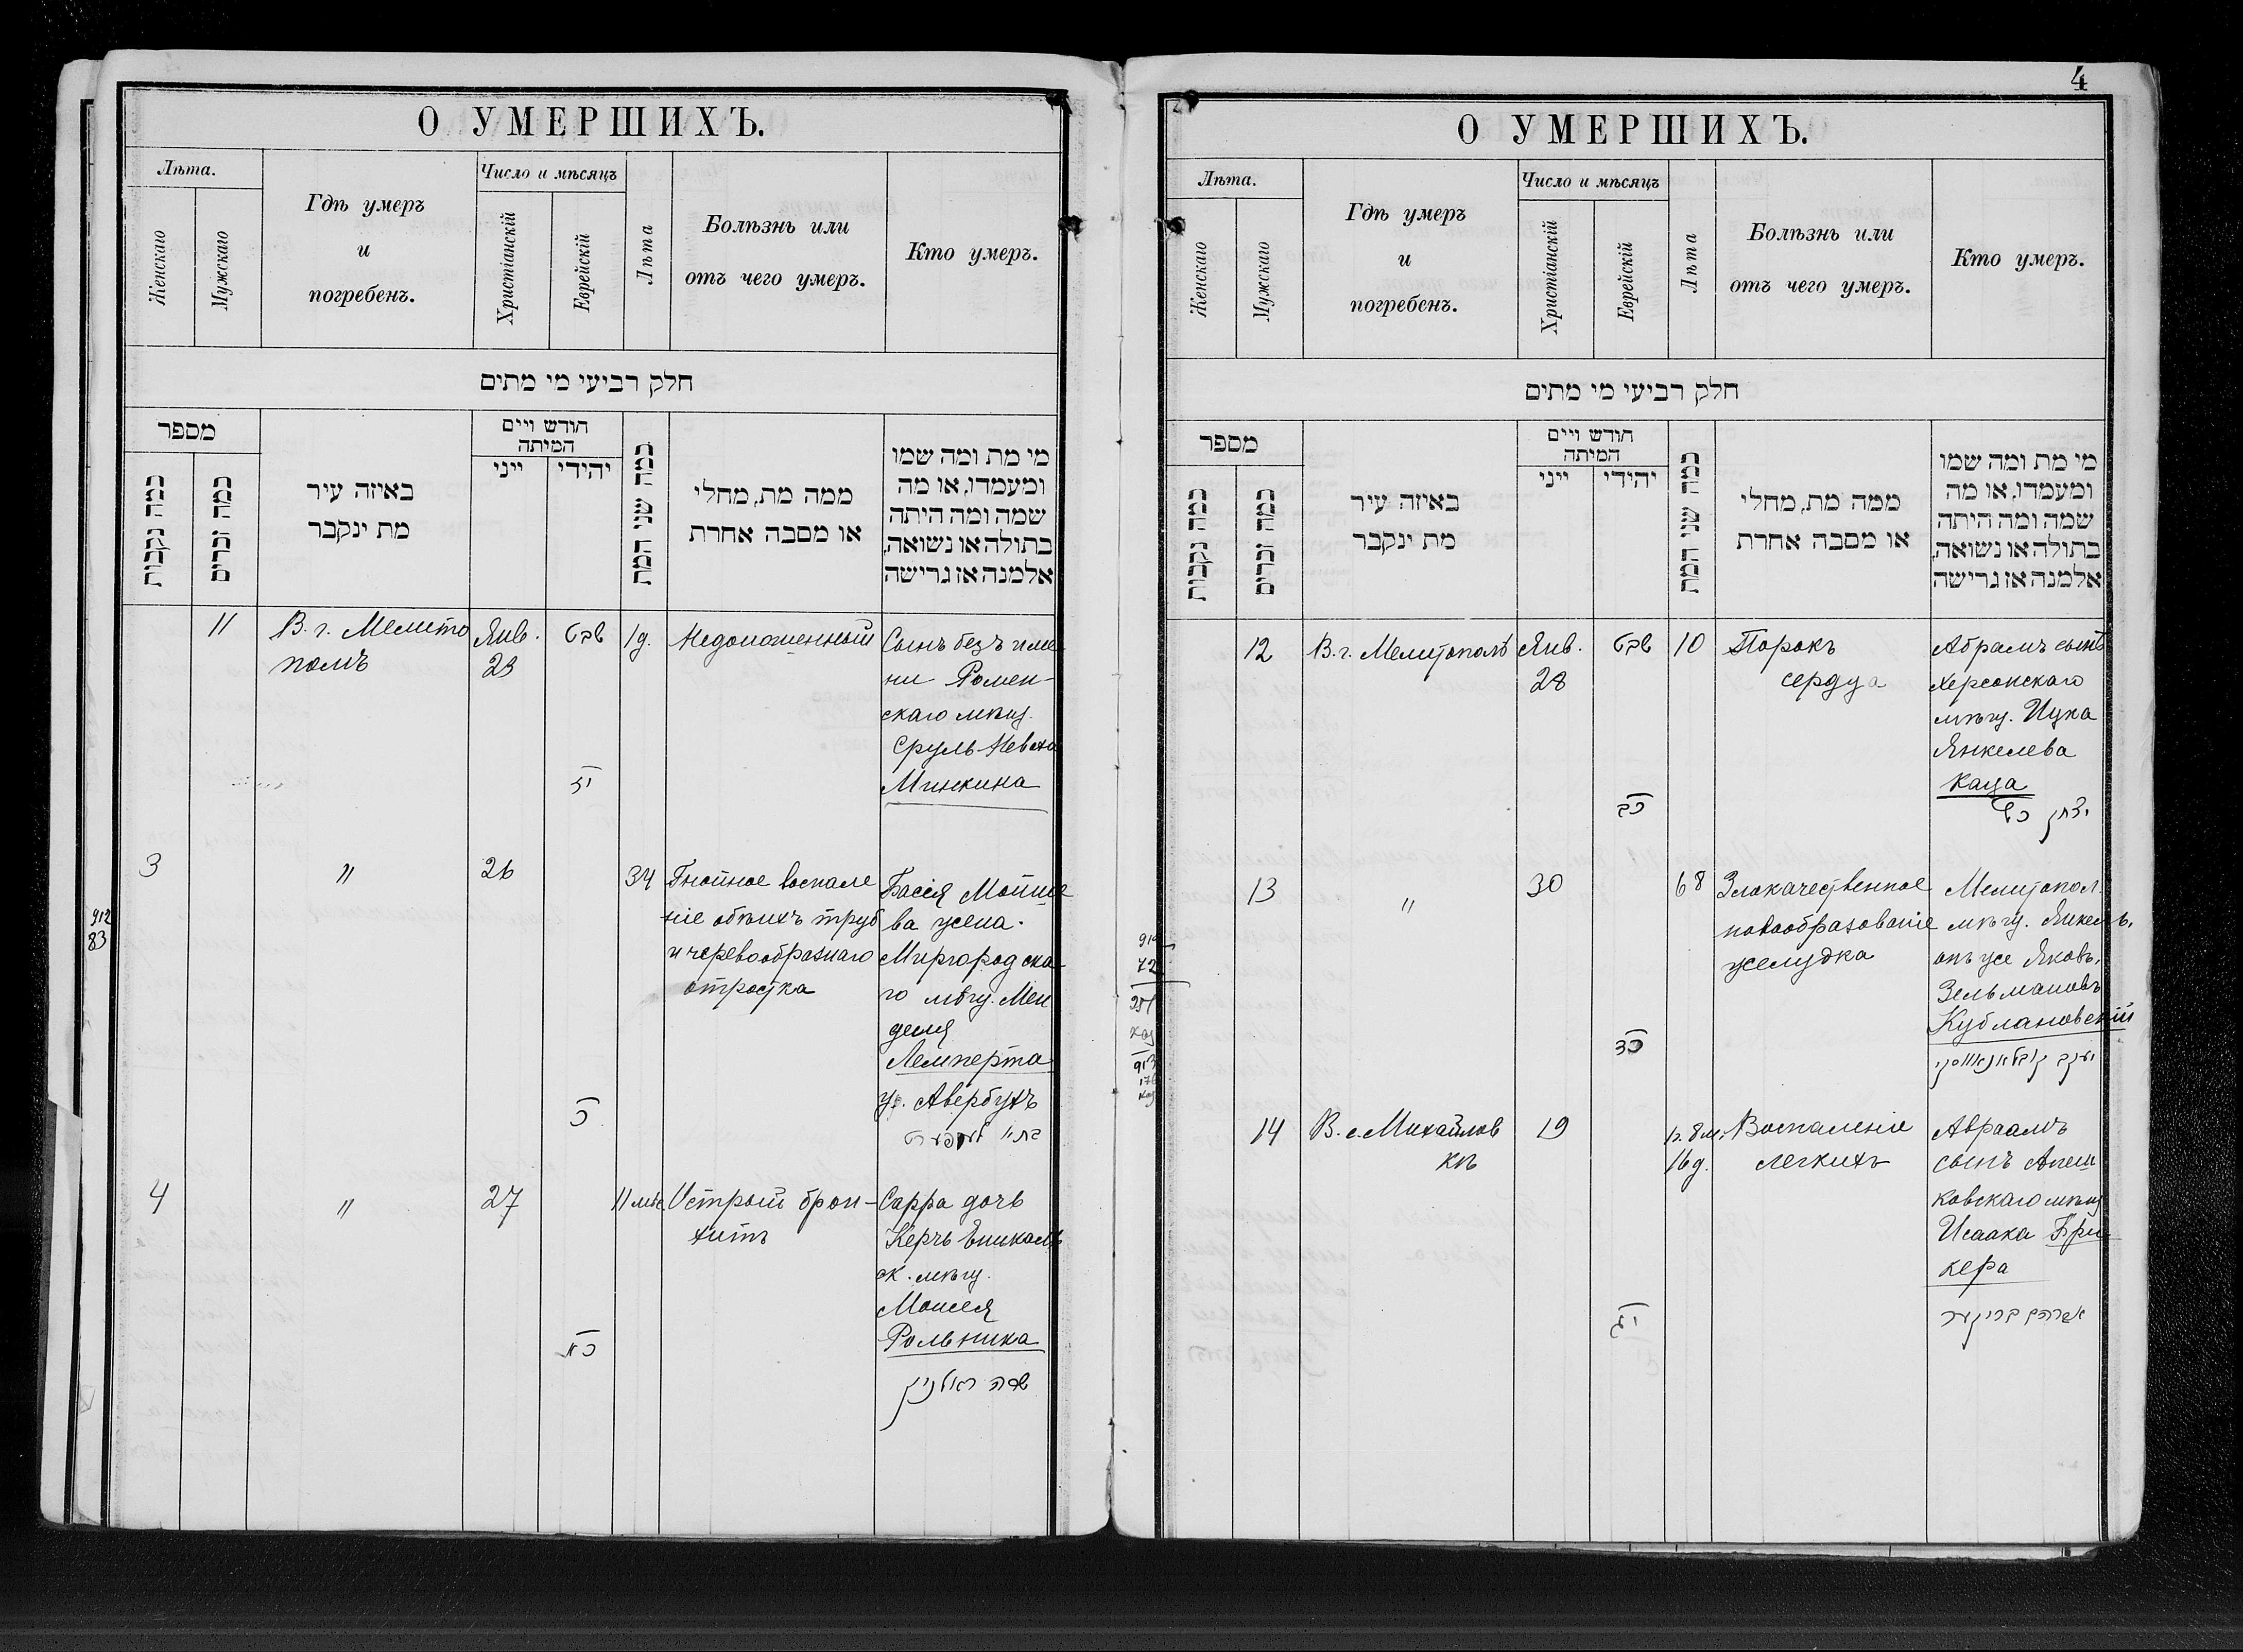 О УМЕРШИХЪ.
Лѣта.
Женскаго
Мужскаго
Гдѣ умеръ
и
погребенъ.
Число и мѣсяцъ
Христіанскій
Еврейскій
Лѣта
Болѣзнь или
отъ чего умеръ.
Кто умеръ.
חלק רביעי מי מתים
מספר
כמה נקבות
כמה זכרים
באיזה עיר
מת ינקבר
חודש ויים
המיתה
ייני
יהידי
כמה שני המת
ממה מת, מחלי
או מסבה אחרת
מי מת ומה שמו
ומעמדו, או מה
שמה ומה היתה
בתולה או נשואה,
אלמנה אז גרישה
11
В. г. Мелито
полѣ
Янв.
23
שבט
יז
1 д.
Недоношенный
Сынъ безъ име
ни Ромен-
скаго мѣщ.
Сруль Невха
Минкина
3
"
26
כ
34
Гнойное воспале
ніе обѣихъ труб
и червообразнаго
отростка
Бассія Мойше
ва жена
Миргородска
го мѣщ. Мен
деля
Лемперта
ур. Авербухъ
בתיו לעמפערט
4
"
27
כא
11 мѣс.
Острый брон-
хитъ
Сарра дочь
Керчь Еникаль
ск. мѣщ.
Моисея
Рольника
שרה ראלניק
912
83
4
О УМЕРШИХЪ.
Лѣта.
Женскаго
Мужскаго
Гдѣ умеръ
и
погребенъ.
Число и мѣсяцъ
Христіанскій
Еврейскій
Лѣта
Болѣзнь или
отъ чего умеръ.
Кто умеръ.
חלק רביעי מי מתים
מספר
כמה נקבות
כמה זכרים
באיזה עיר
מת ינקבר
חודש ויים
המיתה
ייני
יהידי
כמה שני המת
ממה מת, מחלי
או מסבה אחרת
מי מת ומה שמו
ומעמדו, או מה
שמה ומה היתה
בתולה או נשואה,
אלמנה אז גרישה
12
В. г. Мелитополѣ
Янв.
28
שבט
כב
10
Порокъ
сердца
Абрамъ сынъ
Херсонскаго
мѣщ. Ицка
Янкелева
Каца
13
"
30
כד
68
Злокачественное
новообразованіе
желудка
Мелитопол.
мѣщ. Янкель,
онъ же Яковъ,
Зельмановъ
Кублановскій
יעקב קובלאנאווסקי
14
В. с. Михайлов
кѣ
19
יג
1 г. 8 м.
16 д.
Воспаленіе
легкихъ
Авраамъ
сынъ Алеш
ковскаго мѣщ.
Исаака Бри
кера
אברהם בריקער